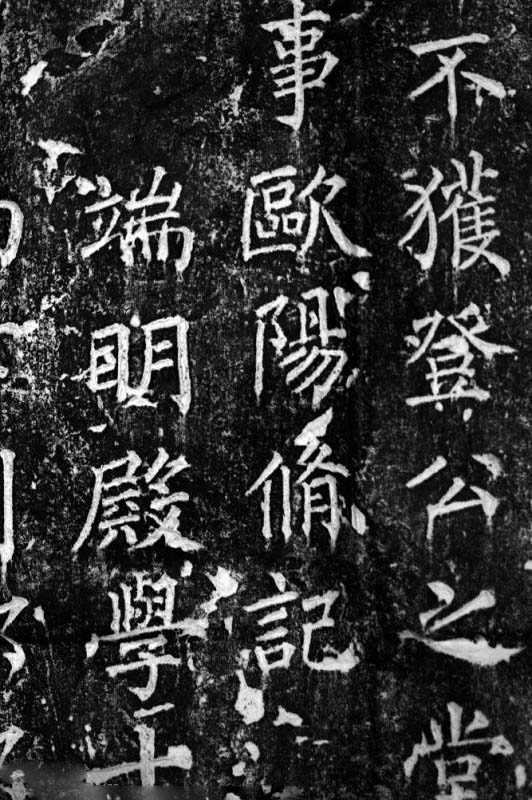 不獲登公之堂
事歐陽脩記
端明殿學士